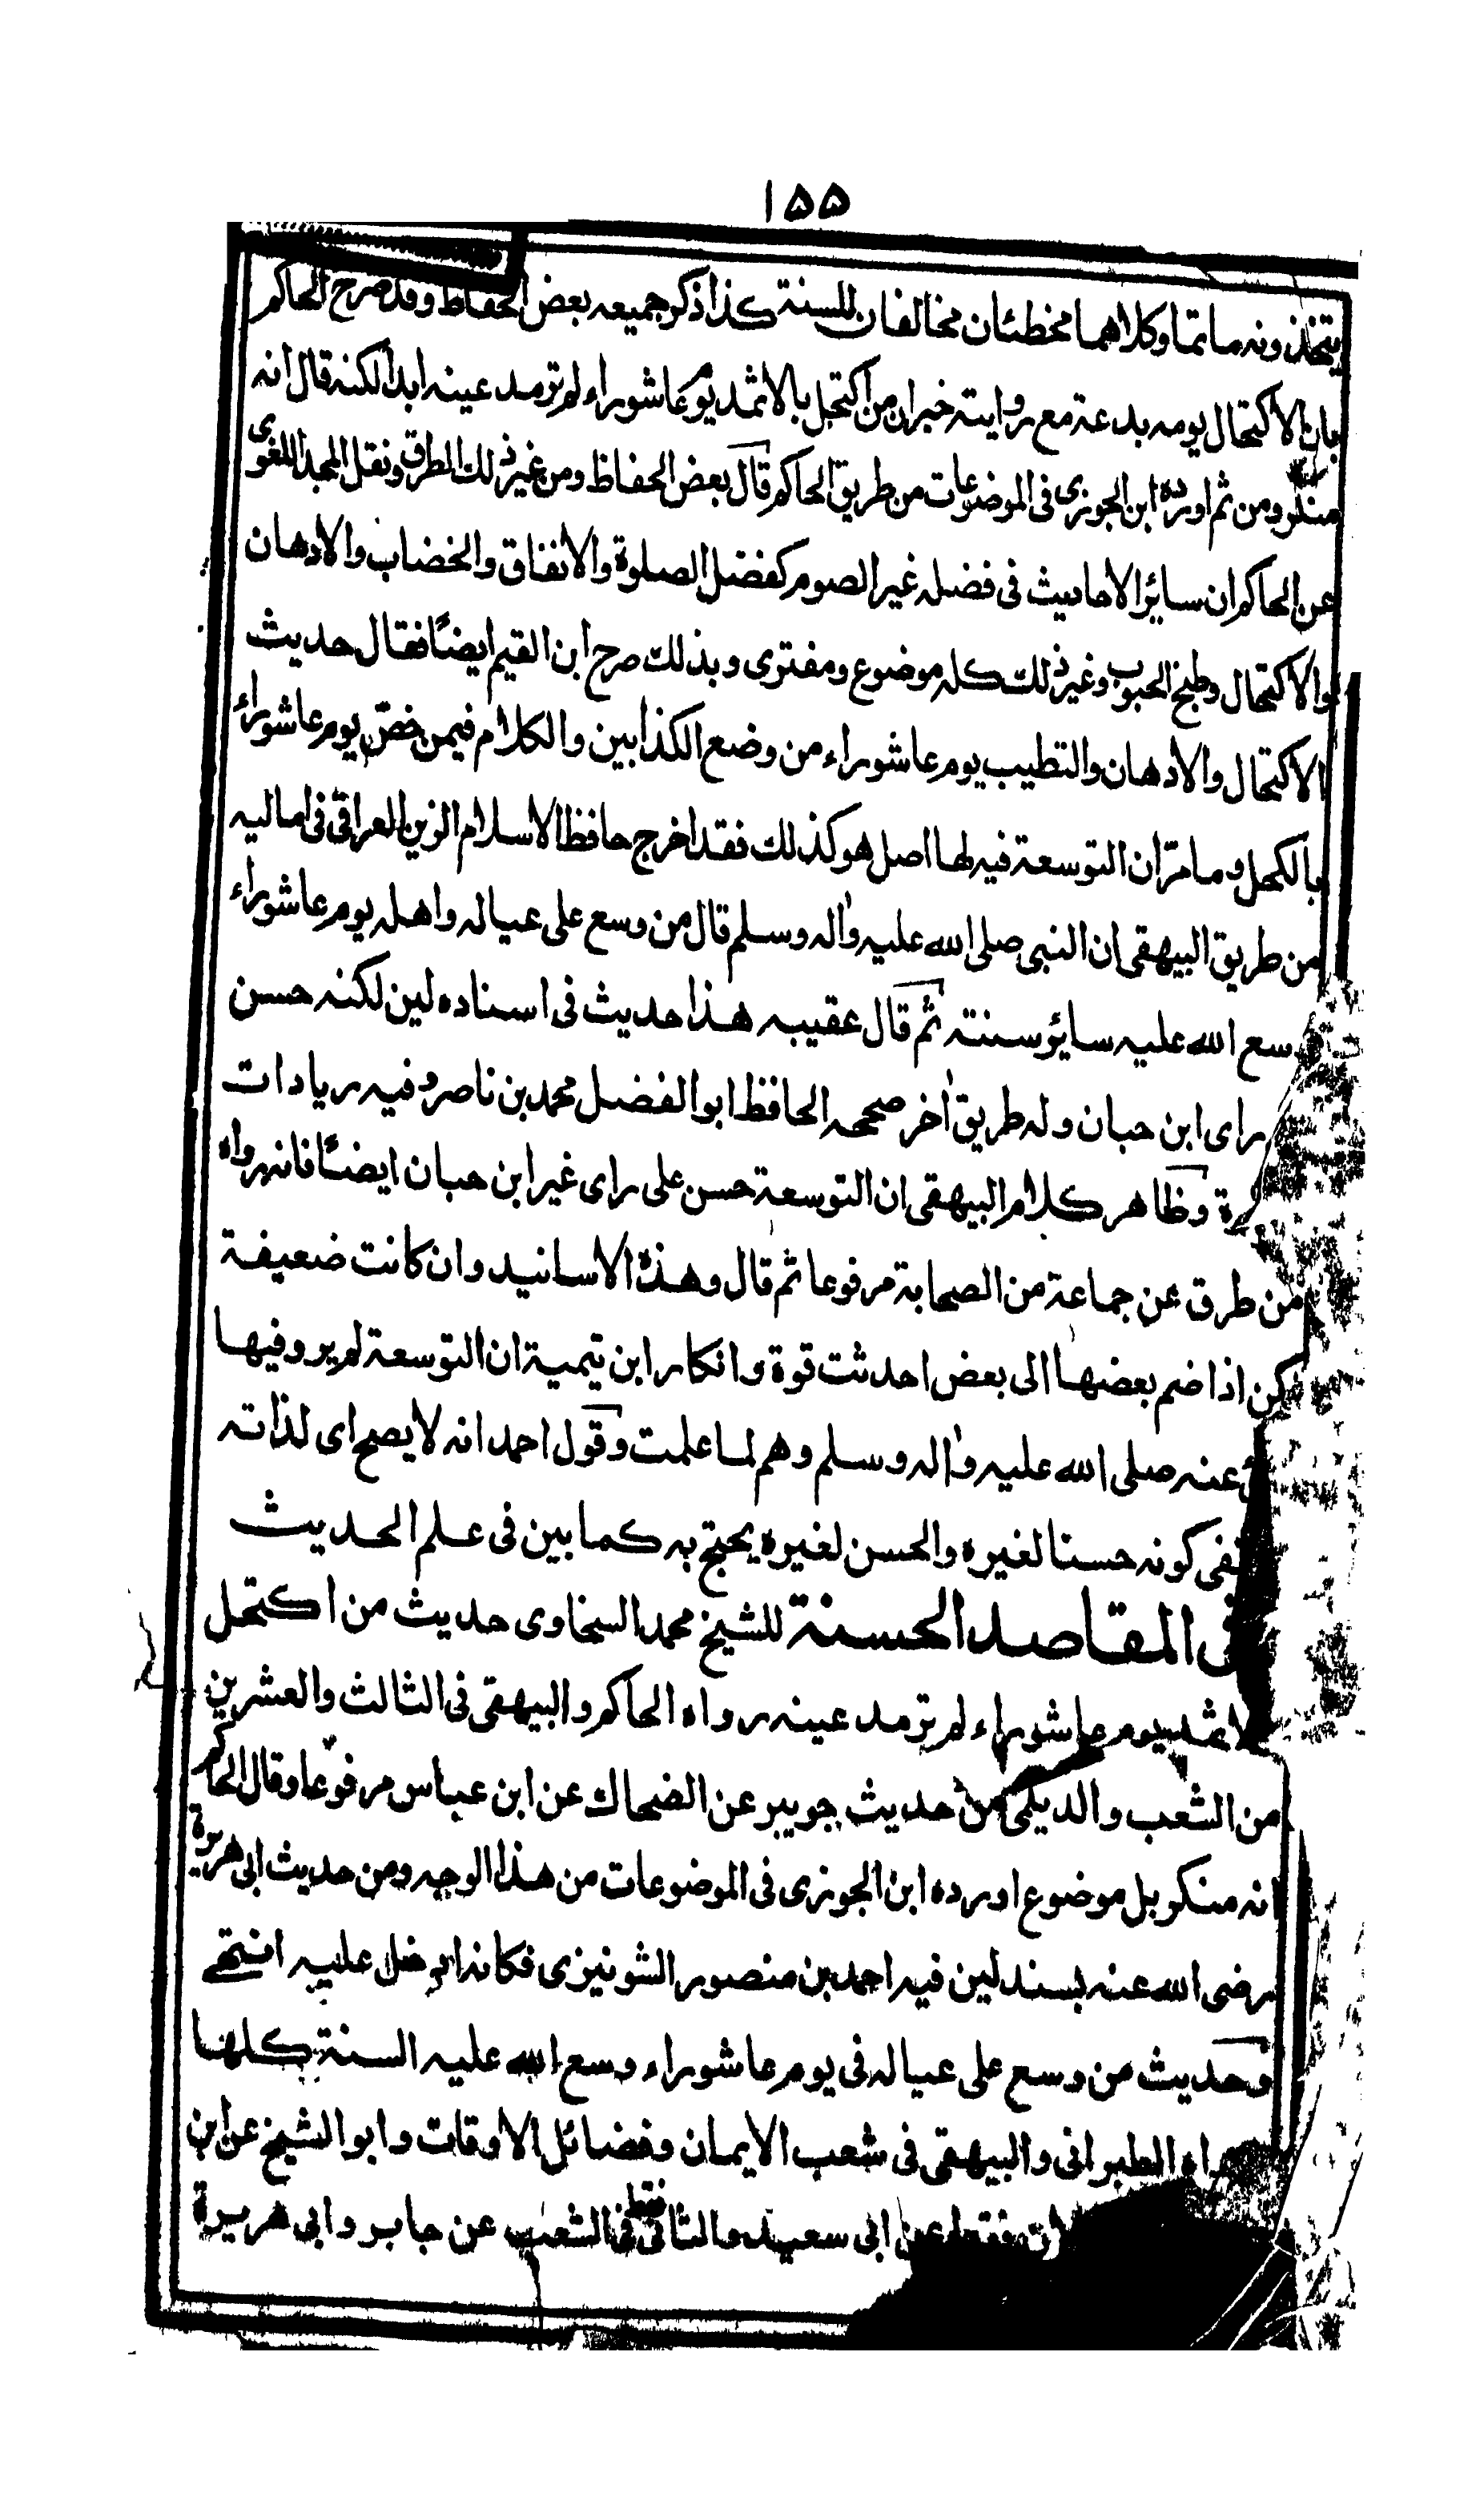 ١٥٥
يتخذونه ماتما وكلاهما مخطئان مخالفان للسنة كذا ذكر جميعه بعض الحفاظ وقد صرح الحاكم
بان الاكتحال يومه بدعة مع رواية خبر ان من اكتحل بالاثمد يوم عاشوراء لم ترمد عينه ابدا لكنه قال انه
منكر ومن ثم اورده ابن الجوزى فى الموضوعات من طريق الحاكم قال بعض الحفاظ ومن غير ذلك الطرق ونقل المجد اللغوى
عن الحاكم ان سائر الاحاديث فى فضله غير الصوم كفضل الصلوة والانفاق والخضاب والادهان
والاكتحال وطبخ الحبوب وغير ذلك كله موضوع ومفترى وبذلك صرح ابن القيم ايضًا فقال حديث
الاكتحال والادهان والتطيب يوم عاشوراء من وضع الكذابين والكلام فيمن خصّ يوم عاشوراء
بالكحل وما مرّ ان التوسعة فيه لها اصل هو كذلك فقد اخرج حافظ الاسلام الزين العراقى فى اماليه
من طريق البيهقى ان النبى صلى الله عليه واله وسلم قال من وسع على عياله واهله يوم عاشوراء
وسع الله عليه سائر سنته ثم قال عقيبه هذا حديث فى اسناده لين لكنه حسن
راى ابن حبان وله طريق اخر صححه الحافظ ابو الفضل محمد بن ناصر وفيه زيادات
وظاهر كلام البيهقى ان التوسعة حسن على راى غير ابن حبان ايضًا فانه رواه
من طرق عن جماعة من الصحابة مرفوعا ثم قال وهذه الاسانيد وان كانت ضعيفة
لكن اذا ضم بعضها الى بعض احدثت قوة وانكار ابن تيمية ان التوسعة لم يرو فيها
عنه صلى الله عليه واله وسلم وهم لما علمت وقول احمد انه لا يصح اى لذاته
ينفى كونه حسنا لغيره والحسن لغيره يحتج به كما بين فى علم الحديث
فى المقاصد الحسنة للشيخ محمد السخاوى حديث من اكتحل
بالاثمد يوم عاشوراء لم ترمد عينه رواه الحاكم والبيهقى فى الثالث والعشرين
من الشعب والديلمى من حديث جويبر عن الضحاك عن ابن عباس مرفوعا وقال الحاكم
انه منكر بل موضوع اورده ابن الجوزى فى الموضوعات من هذا الوجه ومن حديث ابى هريرة
رضى الله عنه بسند لين فيه احمد بن منصور الشونيزى فكانه ادخل عليه انتهى
وحديث من وسع على عياله فى يوم عاشوراء وسع الله عليه السنة كلها
رواه الطبرانى والبيهقى فى شعب الايمان وفضائل الاوقات وابو الشيخ عن ابن
ابى سعيد والثانى فقط فى الشعب عن جابر وابى هريرة